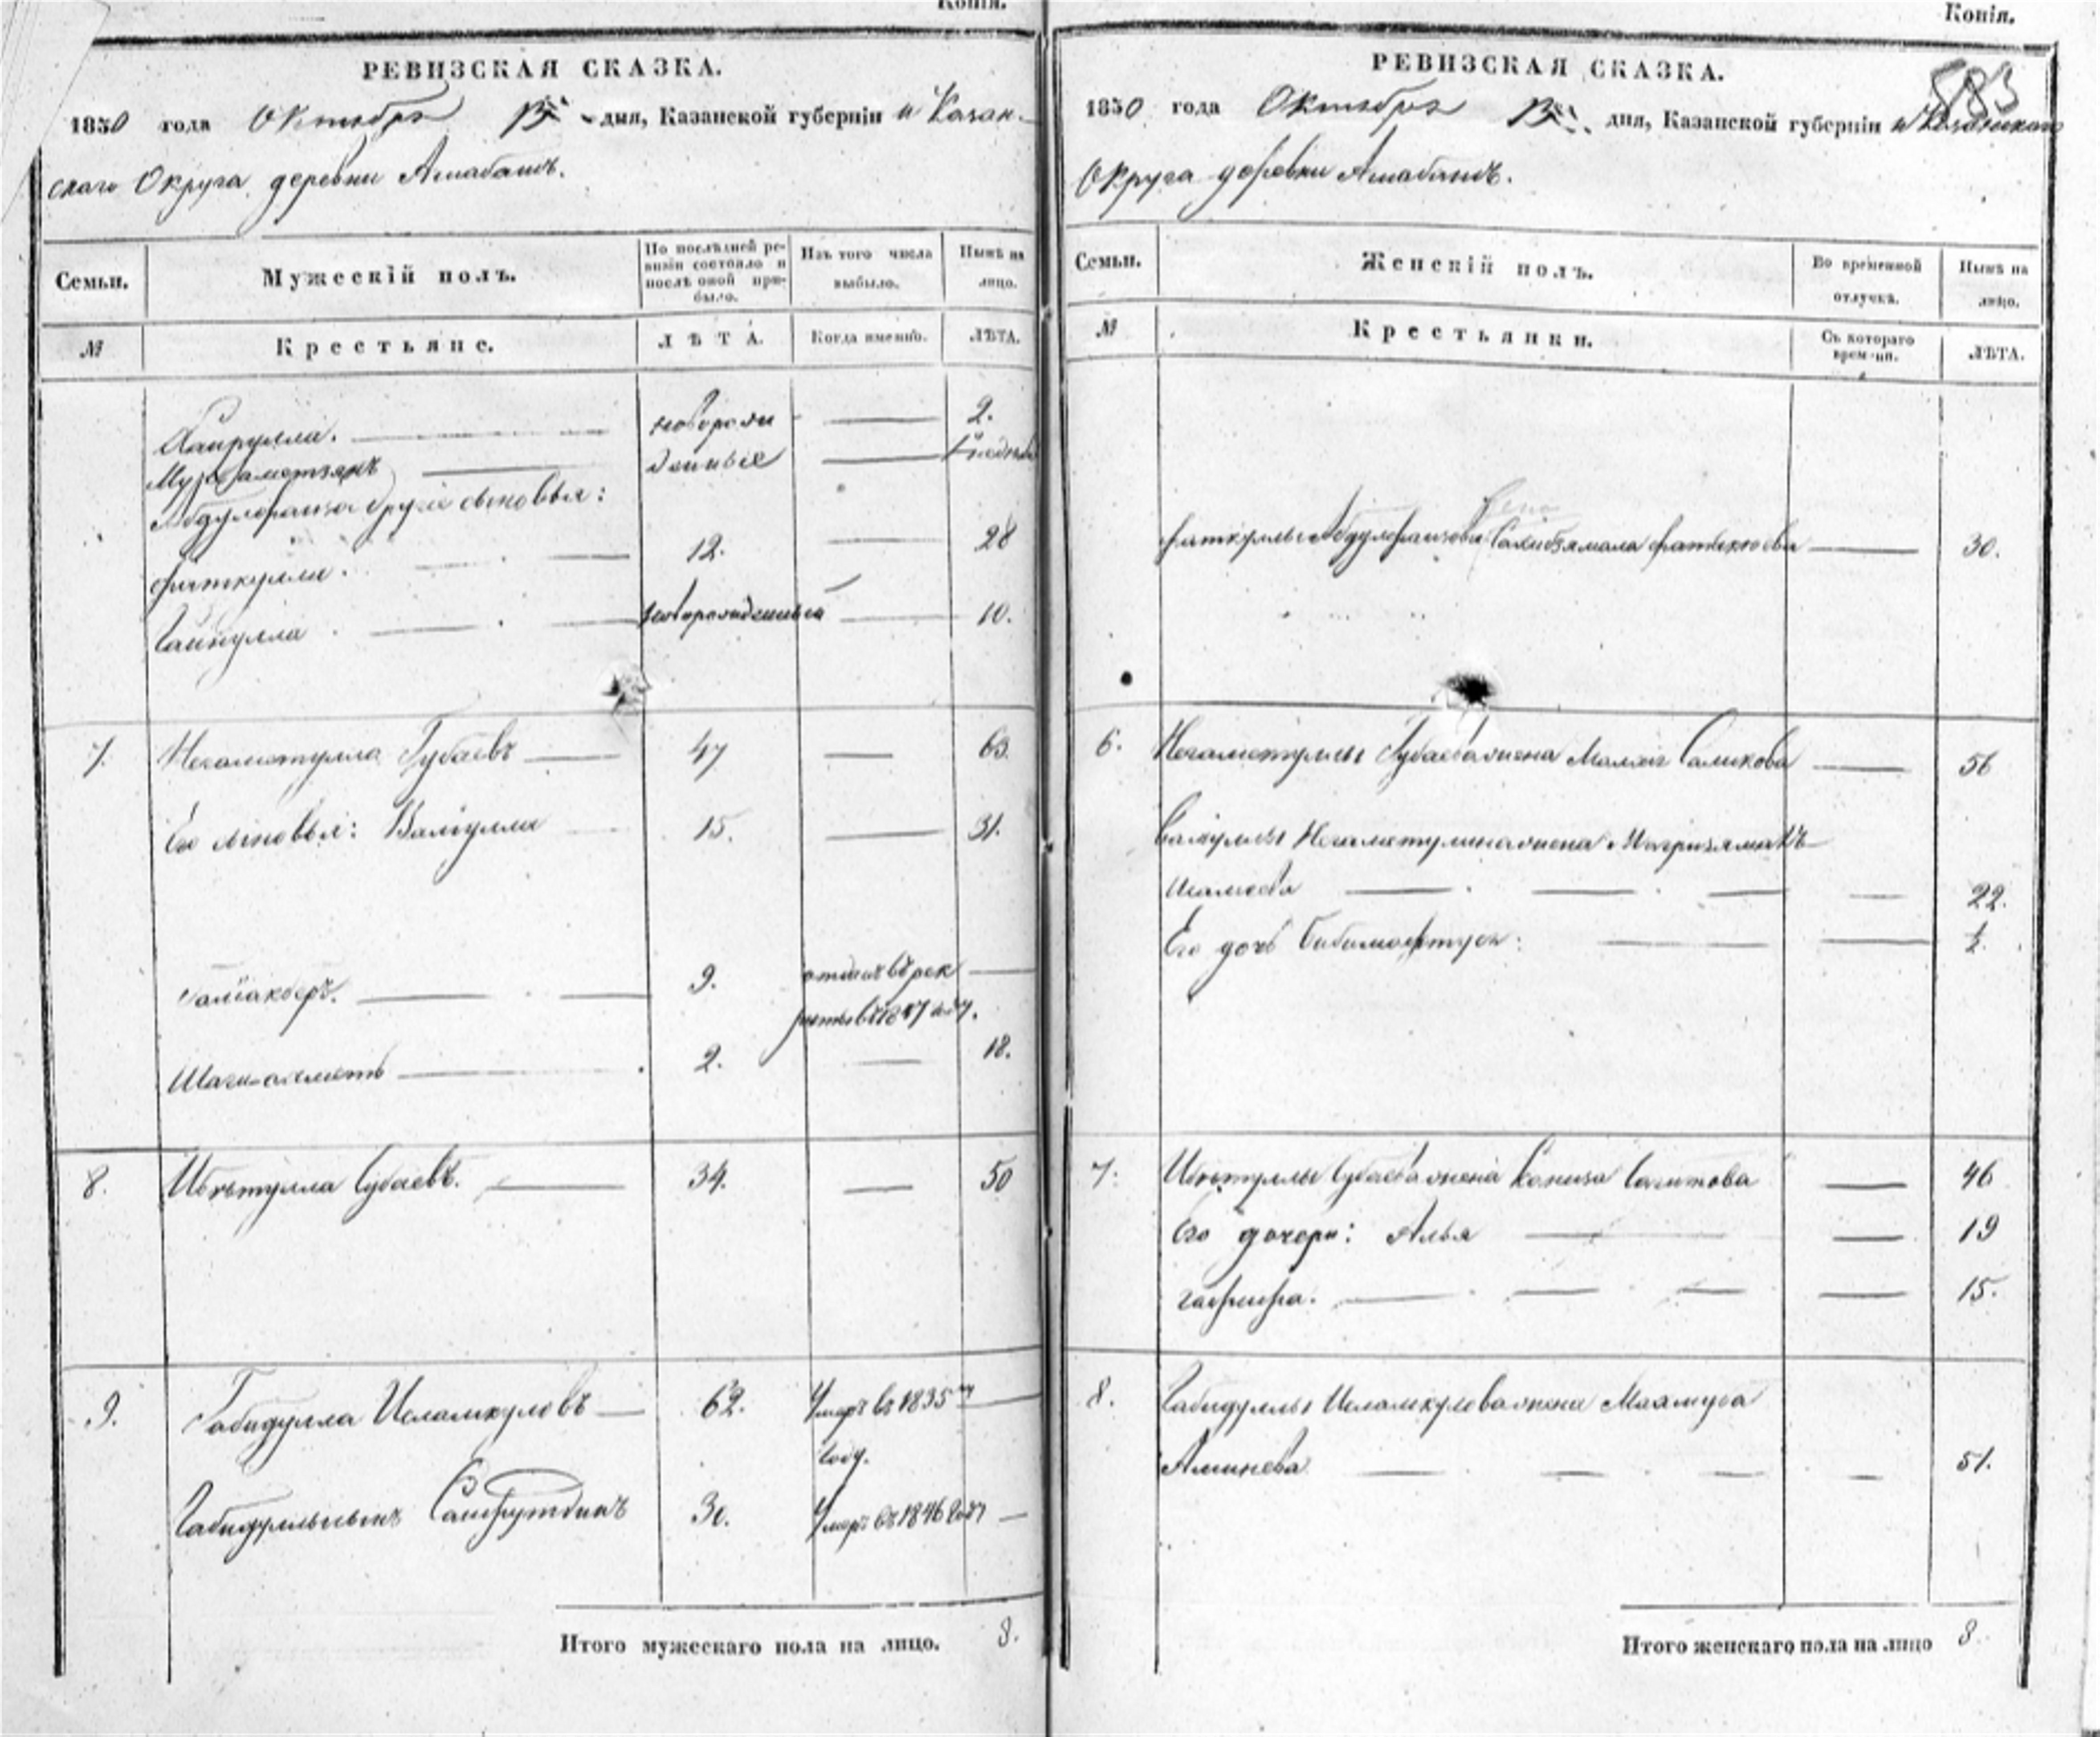 Копія.
РЕВИЗСКАЯ СКАЗКА.
1850 года Октября дня, Казанской губерніи и Казан-
скаго Округа деревни
Семьи.
Мужескій полъ.
По послѣдней ре-
визіи состояло и
послѣ оной при-
было.
Изъ того числа
выбыло.
Нынѣ на
лицо.
№
Крестьяне.
ЛѢТА.
Когда именно.
ЛѢТА.
Хайрулла. новорож 2.
Мухаметзянъ денные
Абдулфаиза другіе сыновья:
Фаткулла. 12. 28
Гайнулла новорожденный 10.
7. Негаметулла Губаевъ 47 63.
Его сыновья: Валіулла 15. 31.
Галіакберъ. 9. отданъ въ рек
руты въ 1847 году.
Шагиахметъ 2. 18.
8. Губаевъ. 34. 50
9. Габидулла Исламкуловъ 62. Умеръ въ 1835мъ
году.
Сайфутдинъ 30. Умеръ въ 1846 году
Итого мужескаго пола на лицо. 8.
Копія.
583
РЕВИЗСКАЯ СКАЗКА.
1850 года Октября дня, Казанской губерніи и Казанскаго
Округа деревни
Семьи.
Женскій полъ.
Во временной
отлучкѣ.
Нынѣ на
лицо.
№
Крестьянки.
Съ котораго
времени.
ЛѢТА.
Фаткуллы Абдулфаизова жена 30.
6. Негаметуллы Губаева жена Саликова 56
Валіуллы Негаметуллина жена
22.
Его дочь ½.
7. Губаева жена Сагитова 46
Его дочери: Алья 19
15.
8. Габидуллы Исламкулова жена
Аминева 51.
Итого женскаго пола на лицо 8.